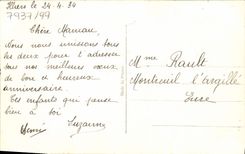 Illiers le 24.4.34
7937/99
Chère Maman
Nous nous unissons tous
les deux pour t'adresser
nos meilleurs vœux
de bon et heureux
anniversaire.
Tes enfants qui pense
bien à toi
Henri Suzanne
Mme Rault
Montreuil l'argillé
Eure